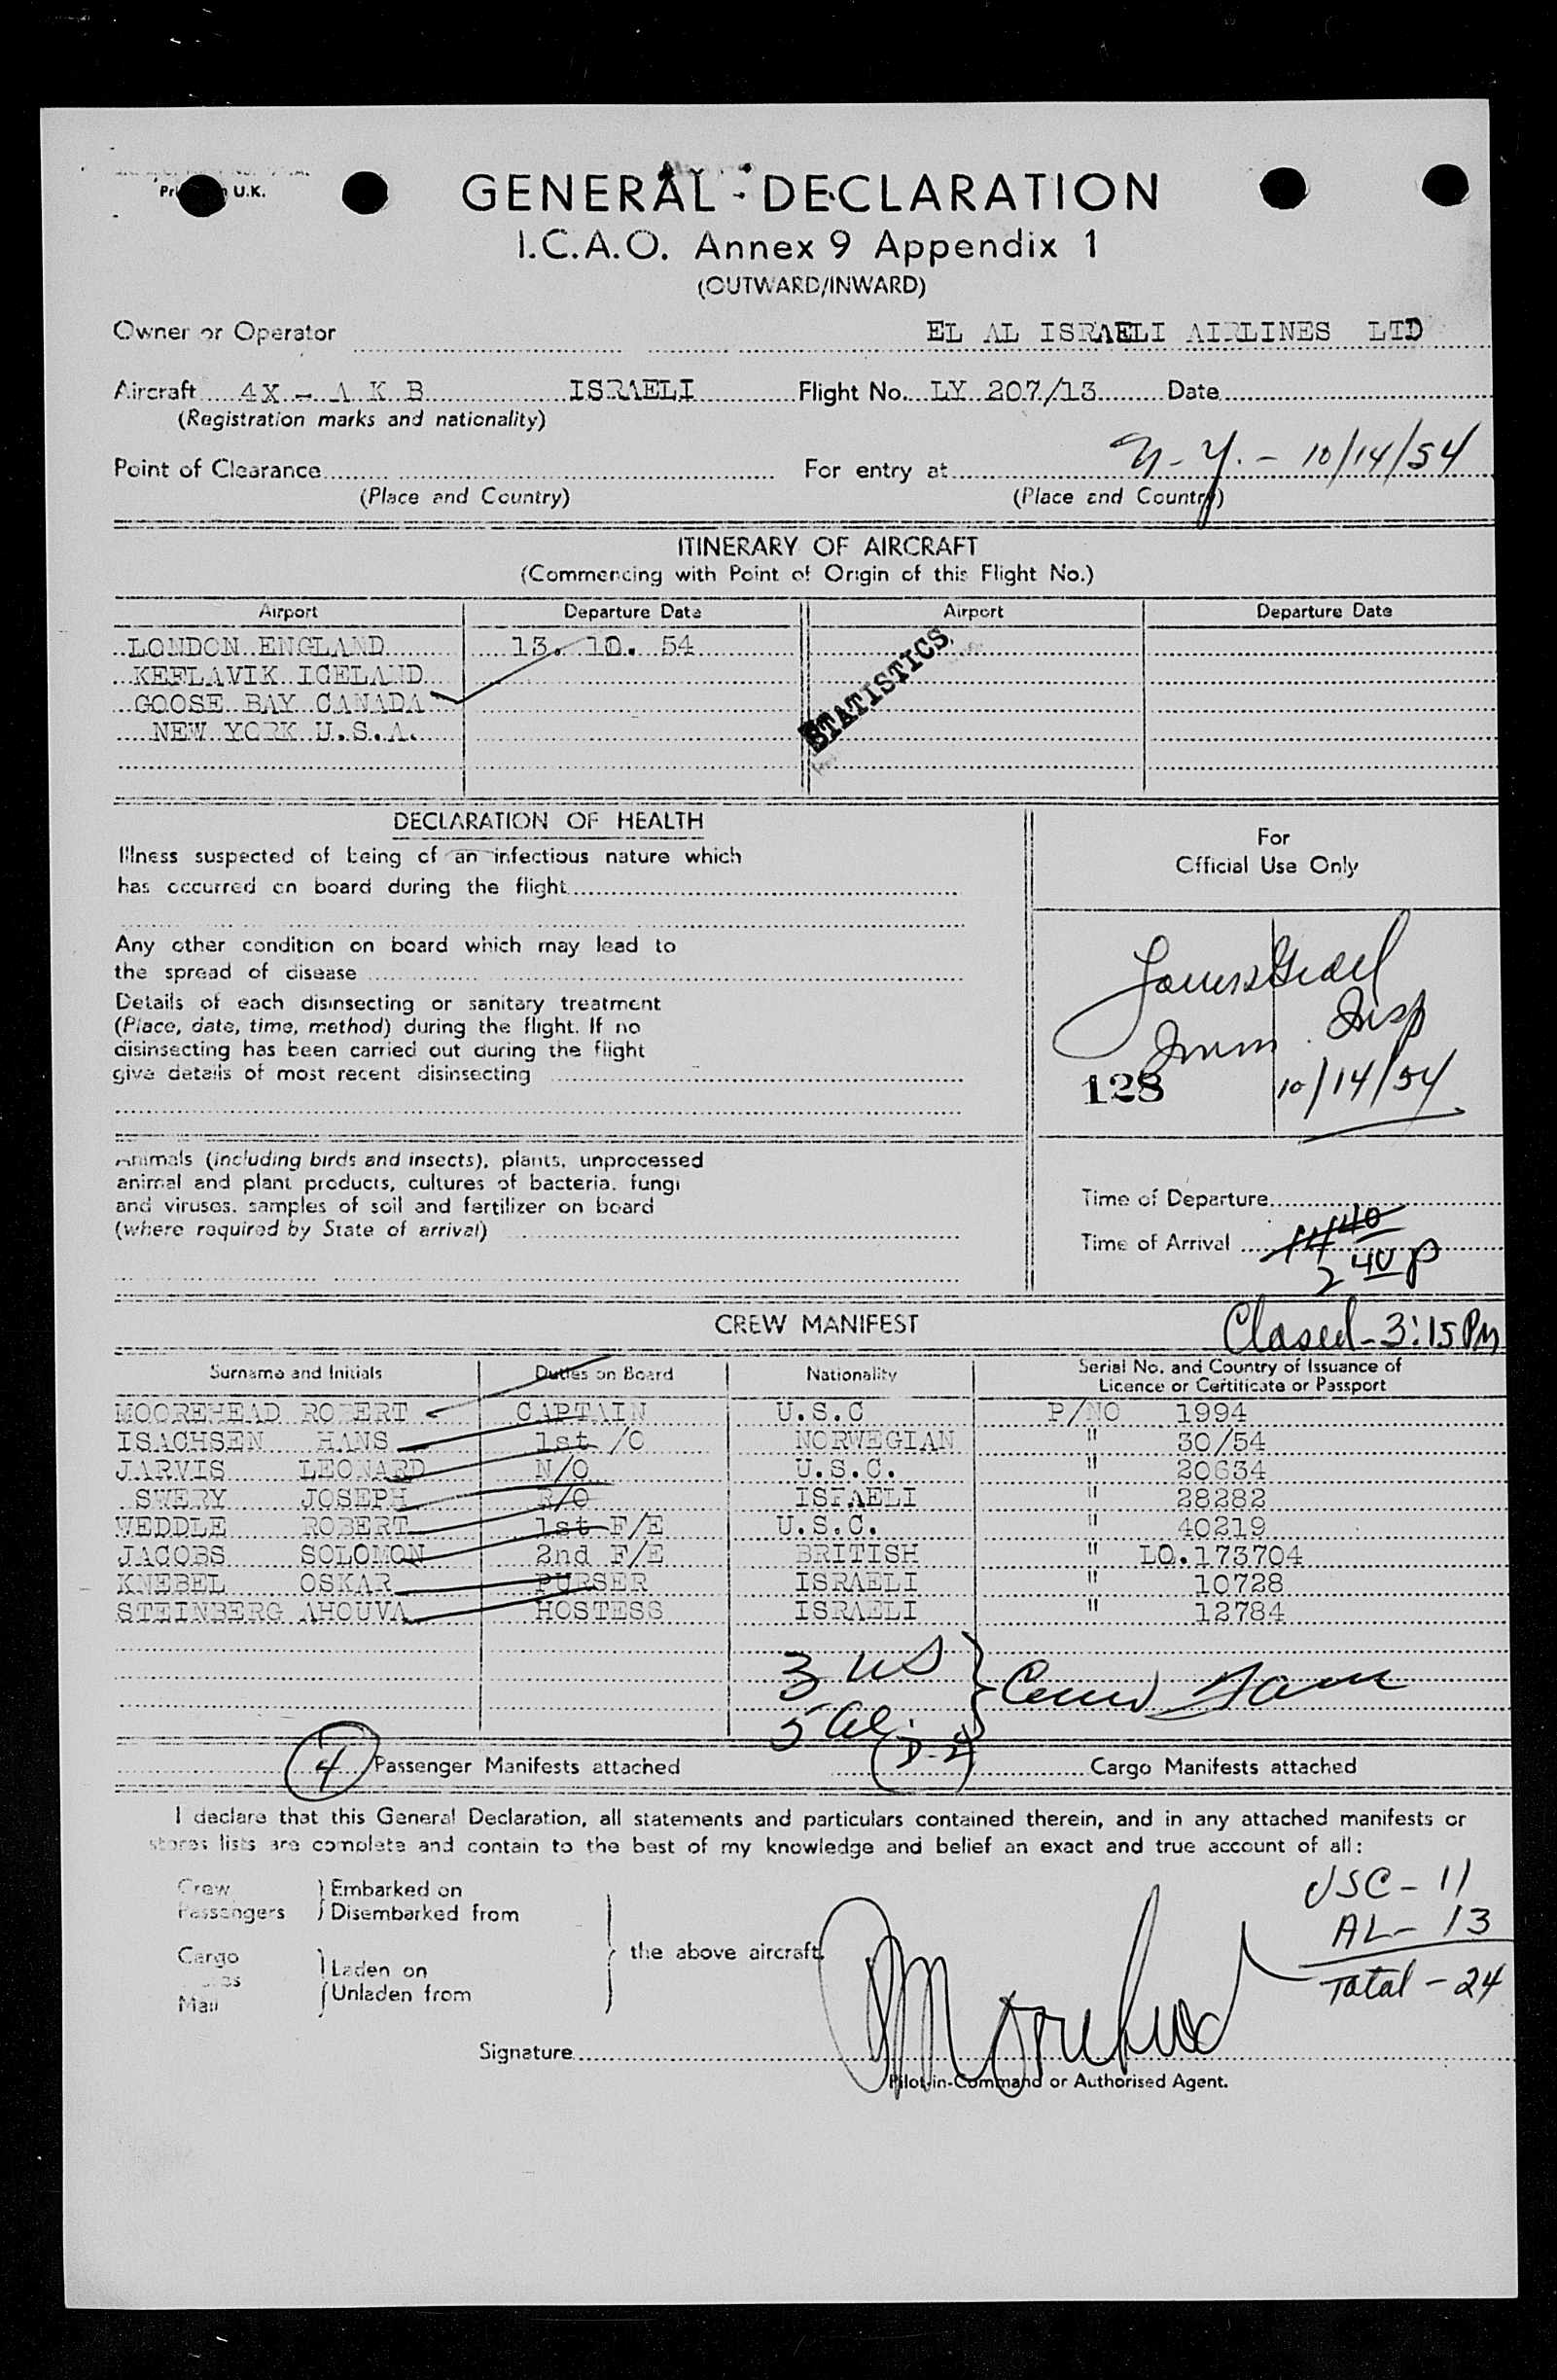 U.K.
GENERAL DECLARATION
I.C.A.O. Annex 9 Appendix 1
(OUTWARD/INWARD)
Owner or Operator EL AL ISRAELI AIRLINES LTD
Aircraft 4X - A K B ISRAELI Flight No. LY 207/13 Date
(Registration marks and nationality)
Point of Clearance For entry at N.Y. - 10/14/54
(Place and Country) (Place and Country)
ITINERARY OF AIRCRAFT
(Commencing with Point of Origin of this Flight No.)
Airport Departure Date Airport Departure Date
LONDON ENGLAND 13. 10. 54
KEFLAVIK ICELAND
GOOSE BAY CANADA
NEW YORK U.S.A.
STATISTICS
DECLARATION OF HEALTH
Illness suspected of being of an infectious nature which
has occurred on board during the flight
Any other condition on board which may lead to
the spread of disease
Details of each disinsecting or sanitary treatment
(Place, date, time, method) during the flight. If no
disinsecting has been carried out during the flight
give details of most recent disinsecting
For
Official Use Only
Imm. Insp
128 10/14/54
Animals (including birds and insects), plants, unprocessed
animal and plant products, cultures of bacteria, fungi
and viruses, samples of soil and fertilizer on board
(where required by State of arrival)
Time of Departure
Time of Arrival
2 40 p
Closed - 3:15 PM
CREW MANIFEST
Surname and Initials Duties on Board Nationality Serial No. and Country of Issuance of
Licence or Certificate or Passport
MOOREHEAD ROBERT CAPTAIN U.S.C P/NO 1994
ISACHSEN HANS 1st /O NORWEGIAN " 30/54
JARVIS LEONARD N/O U.S.C. " 20634
SWERY JOSEPH R/O ISRAELI " 28282
WEDDLE ROBERT 1st F/E U.S.C. " 40219
JACOBS SOLOMON 2nd F/E BRITISH " LO.173704
KNEBEL OSKAR PURSER ISRAELI " 10728
STEINBERG AHOUVA HOSTESS ISRAELI " 12784
3 US
5 al.
4 Passenger Manifests attached Cargo Manifests attached
I declare that this General Declaration, all statements and particulars contained therein, and in any attached manifests or
stores lists are complete and contain to the best of my knowledge and belief an exact and true account of all:
Crew Embarked on
Passengers Disembarked from
the above aircraft.
Cargo
Laden on
Mail Unladen from
USC - 11
AL - 13
Total - 24
Signature
Pilot-in-Command or Authorised Agent.